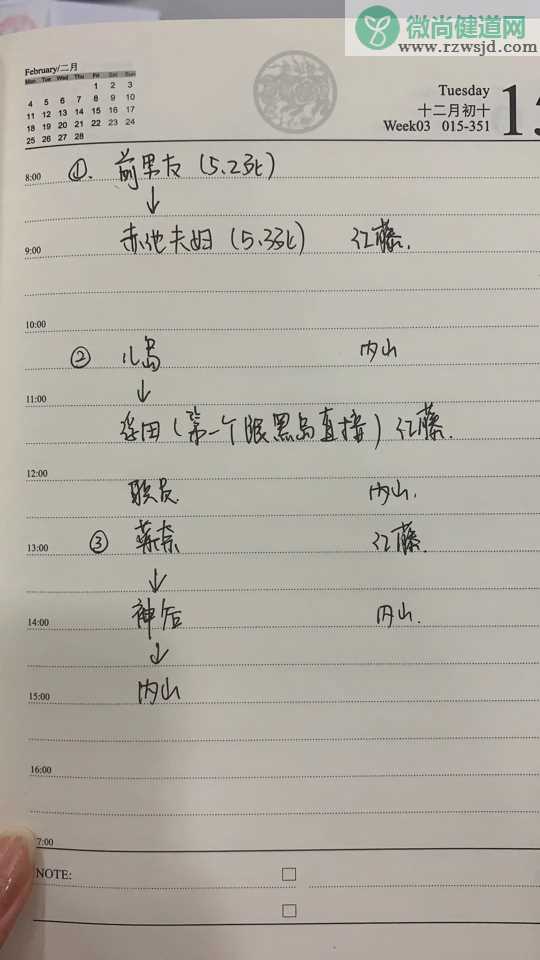 微尚健道网
www.rzwsjd.com
February/二月
Mon Tue Wed Thu Fri Sat Sun
1 2 3
4 5 6 7 8 9 10
11 12 13 14 15 16 17
18 19 20 21 22 23 24
25 26 27 28
Tuesday
十二月初十
Week03 015-351
8:00 ①. 前男友 (5.2死)
↓
9:00 赤池夫妇 (5.3死) 江藤.
10:00
② 儿岛 内山
↓
11:00
浮田 (第一个跟黑岛直接) 江藤.
12:00
职员 内山.
13:00 ③ 菜奈 江藤.
↓
14:00 神谷 内山.
↓
15:00 内山
16:00
7:00
NOTE: